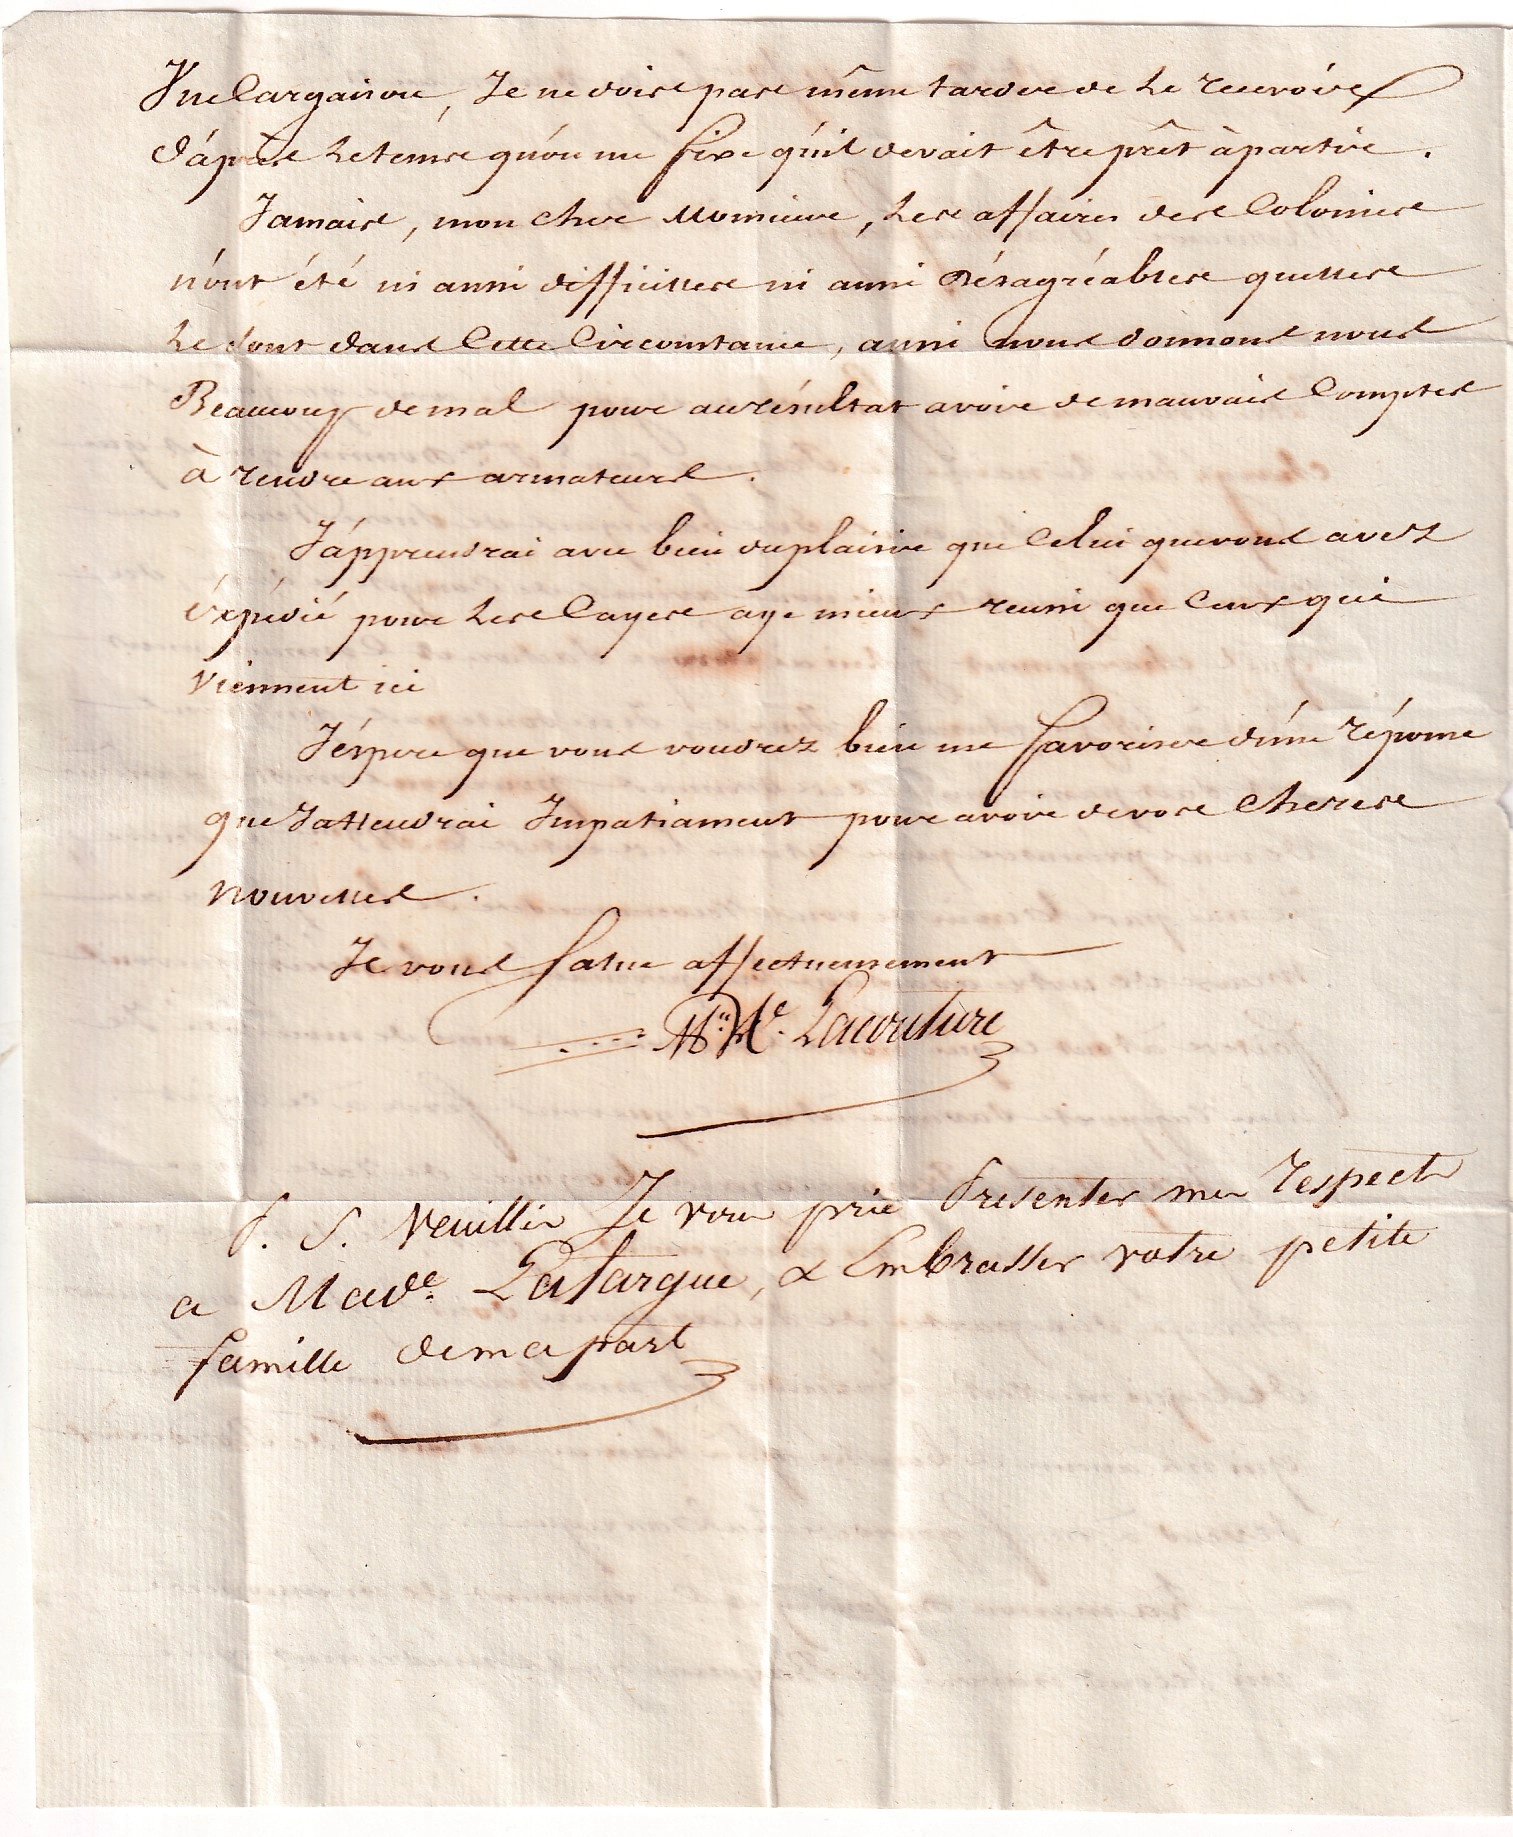 Une Cargaison, Je ne dois pas même tarder de le recevoir
d'áprès le tems qu'on me fixe qu'il devait être prêt à partir.
Jamais, mon cher Monsieur, les affaires des Colonies
n'ont été ni aussi difficilles ni aussi désagréables quelles
le sont dans Cette Circonstance, aussi nous donnons nous
Beaucoup de mal pour au résultat avoir de mauvais Comptes
à rendre aux armateurs.
J'apprendrai avec bien du plaisir que Celui que vous avez
éxpédié pour les Cayes aye mieux reussi que Ceux qui
viennent ici
J'éspere que vous voudrez bien me favoriser d'une réponse
que Jattendrai Impatiament pour avoir de vos Cheres
nouvelles.
Je vous salue affectueusement
Lacouture
P. S. Veuillés Je vous prie Presenter mes respects
a Made. Lafargue, & Embrasser votre petite
famille de ma part